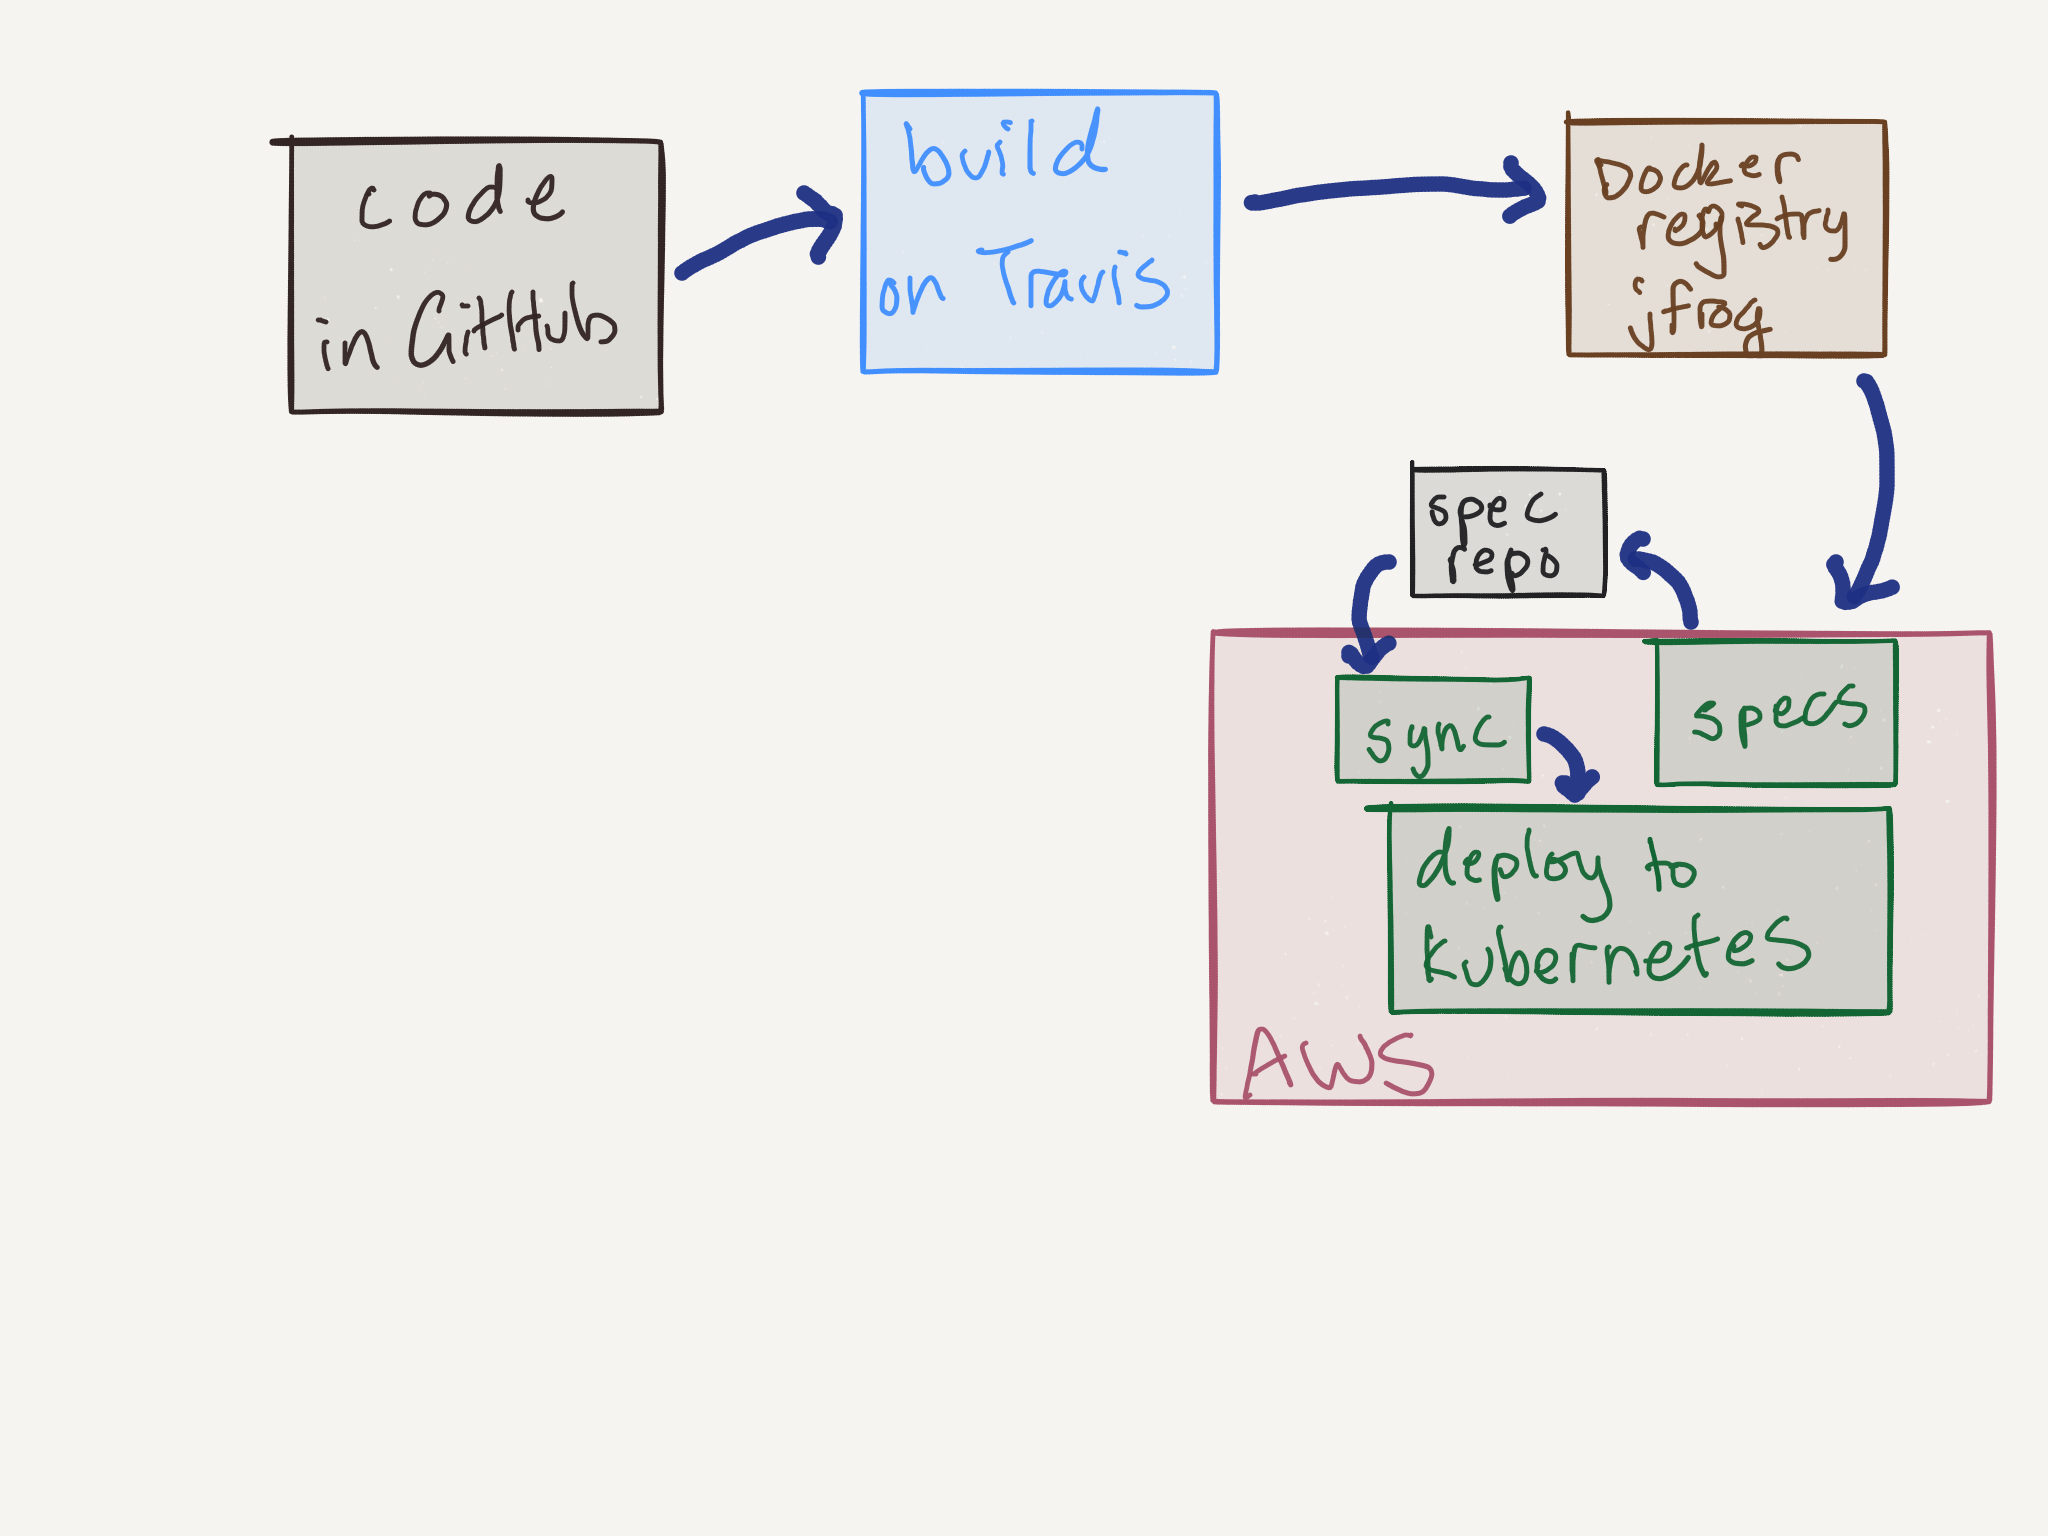 code
in GitHub
build
on Travis
Docker
registry
jfrog
spec
repo
sync
specs
deploy to
kubernetes
AWS